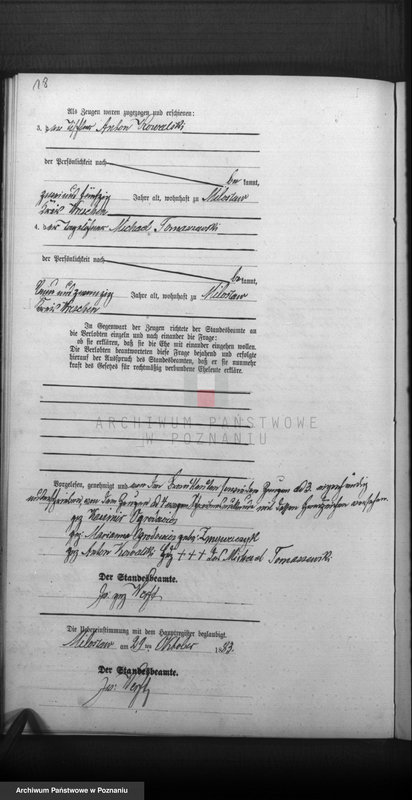 18
Als Zeugen waren zugezogen und erschienen:
3. der Tischler Anton Kowalski
der Persönlichkeit nach
be kannt,
zwei und fünfzig Jahre alt, wohnhaft zu Miloslaw
Kreis Wreschen
4. der Tagelöhner Michael Tomaszewski
der Persönlichkeit nach
be kannt,
und zwanzig Jahre alt, wohnhaft zu Miloslaw
Kreis Wreschen
In Gegenwart der Zeugen richtete der Standesbeamte an
die Verlobten einzeln und nach einander die Frage:
ob sie erklären, daß sie die Ehe mit einander eingehen wollen.
Die Verlobten beantworteten diese Frage bejahend und erfolgte
hierauf der Ausspruch des Standesbeamten, daß er sie nunmehr
kraft des Gesetzes für rechtmäßig verbundene Eheleute erkläre.
ARCHIWUM PAŃSTWOWE
W POZNANIU
Vorgelesen, genehmigt und von den Eheleuten sowie dem Zeugen ad 3. eigenhändig
unterschrieben, von dem Zeugen ad 4 wegen mit seinem Handzeichen versehen.
gez Kasimir
gez Marianna geb.
gez Anton Kowalski gez + + + des Michael Tomaszewski
Der Standesbeamte.
gez
Die Uebereinstimmung mit dem Hauptregister beglaubigt.
Miloslaw am 29 ten Oktober 1883.
Der Standesbeamte.
Archiwum Państwowe w Poznaniu